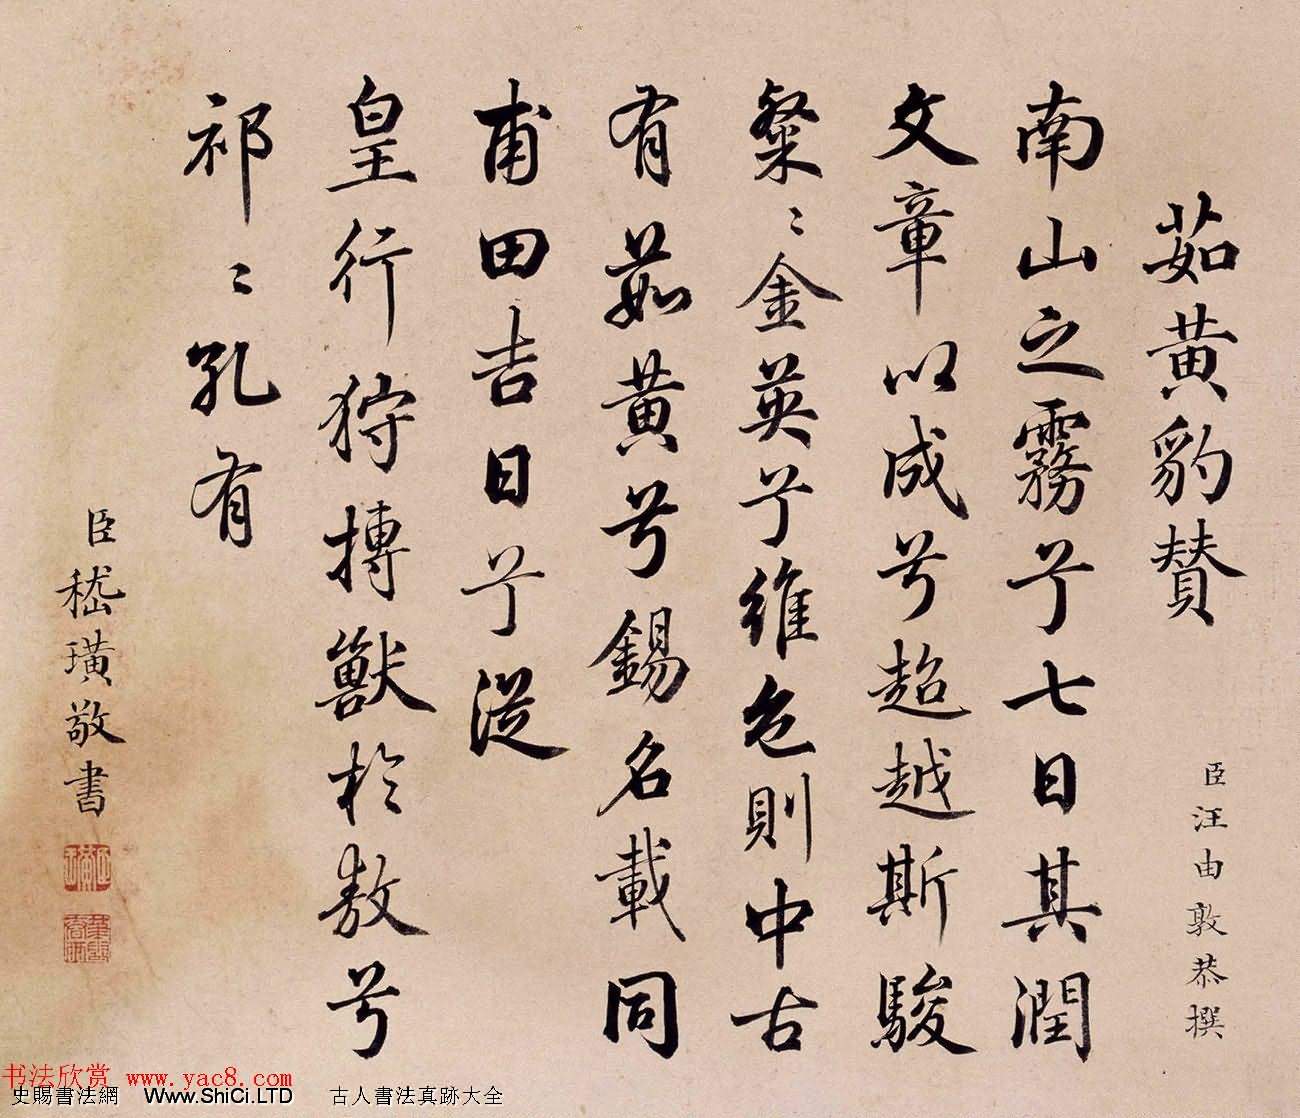 茹黃豹賛
臣汪由敦恭撰
南山之霧兮七日其潤
文章以成兮超越斯駿
粲〻金英兮維色則中古
有茹黃兮錫名載同
甫田吉日兮從
皇行狩搏獸於敖兮
祁〻孔有
臣嵇璜敬書
书法欣赏 www.yac8.com
史賜書法網 Www.ShiCi.LTD 古人書法真跡大全